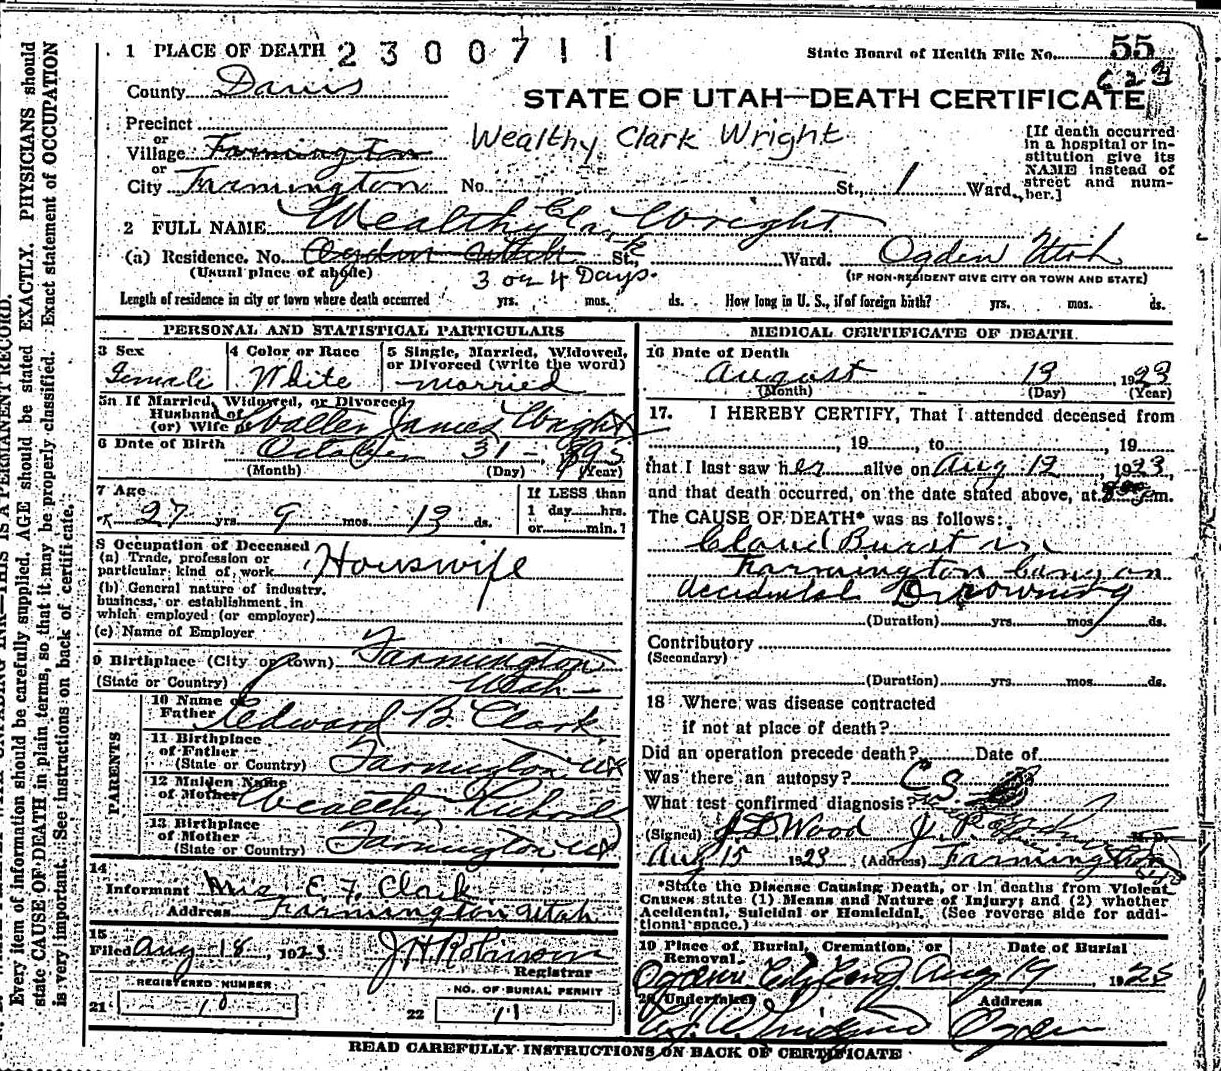 1 PLACE OF DEATH 2300711 State Board of Health File No. 55
County Davis 623
STATE OF UTAH—DEATH CERTIFICATE
Precinct
or
Village Farmington
or
City Farmington No. St., 1 Ward.
Wealthy Clark Wright
[If death occurred
in a hospital or in-
stitution give its
NAME instead of
street and num-
ber.]
2 FULL NAME Wealthy Clark Wright
(a) Residence. No. St., Ward. Ogden Utah
(Usual place of abode) 3 or 4 Days. (IF NON-RESIDENT GIVE CITY OR TOWN AND STATE)
Length of residence in city or town where death occurred yrs. mos. ds. How long in U. S., if of foreign birth? yrs. mos. ds.
PERSONAL AND STATISTICAL PARTICULARS
3 Sex
Female
4 Color or Race
White
5 Single, Married, Widowed,
or Divorced (write the word)
married
5a If Married, Widowed, or Divorced
Husband of
(or) Wife of Walter James Wright
6 Date of Birth October 31 - 1895
(Month) (Day) (Year)
7 Age
27 yrs. 9 mos. 13 ds.
If LESS than
1 day hrs.
or min.?
8 Occupation of Deceased
(a) Trade, profession or
particular kind of work Houswife
(b) General nature of industry,
business, or establishment in
which employed (or employer)
(c) Name of Employer
9 Birthplace (City or town) Farmington
(State or Country) Utah
PARENTS
10 Name of
Father Edward B. Clark
11 Birthplace
of Father
(State or Country) Farmington Ut
12 Maiden Name
of Mother Wealthy Richards
13 Birthplace
of Mother
(State or Country) Farmington Ut
14
Informant Mrs E. F. Clark
Address Farmington Utah
15
Filed Aug 18, 1923 J H Robinson
Registrar
REGISTERED NUMBER
21
NO. OF BURIAL PERMIT
22 11
MEDICAL CERTIFICATE OF DEATH
16 Date of Death
August 13, 1923
(Month) (Day) (Year)
17. I HEREBY CERTIFY, That I attended deceased from
, 19 , to , 19
that I last saw her alive on Aug 12, 1923,
and that death occurred, on the date stated above, at m.
The CAUSE OF DEATH* was as follows:
Cloud Burst in
Farmington Canyon
Accidental Drowning
(Duration) yrs. mos. ds.
Contributory
(Secondary)
(Duration) yrs. mos. ds.
18 Where was disease contracted
if not at place of death?
Did an operation precede death? Date of
Was there an autopsy?
What test confirmed diagnosis?
(Signed) J D Wood M. D.
Aug 15 1923 (Address) Farmington
*State the Disease Causing Death, or in deaths from Violent
Causes state (1) Means and Nature of Injury; and (2) whether
Accidental, Suicidal or Homicidal. (See reverse side for addi-
tional space.)
19 Place of Burial, Cremation, or
Removal. Date of Burial
Ogden City Cem Aug 19 1923
20 Undertaker Address
Ogden
READ CAREFULLY INSTRUCTIONS ON BACK OF CERTIFICATE
Every item of information should be carefully supplied. AGE should be stated EXACTLY. PHYSICIANS should
state CAUSE OF DEATH in plain terms, so that it may be properly classified. Exact statement of OCCUPATION
is very important. See instructions on back of certificate.